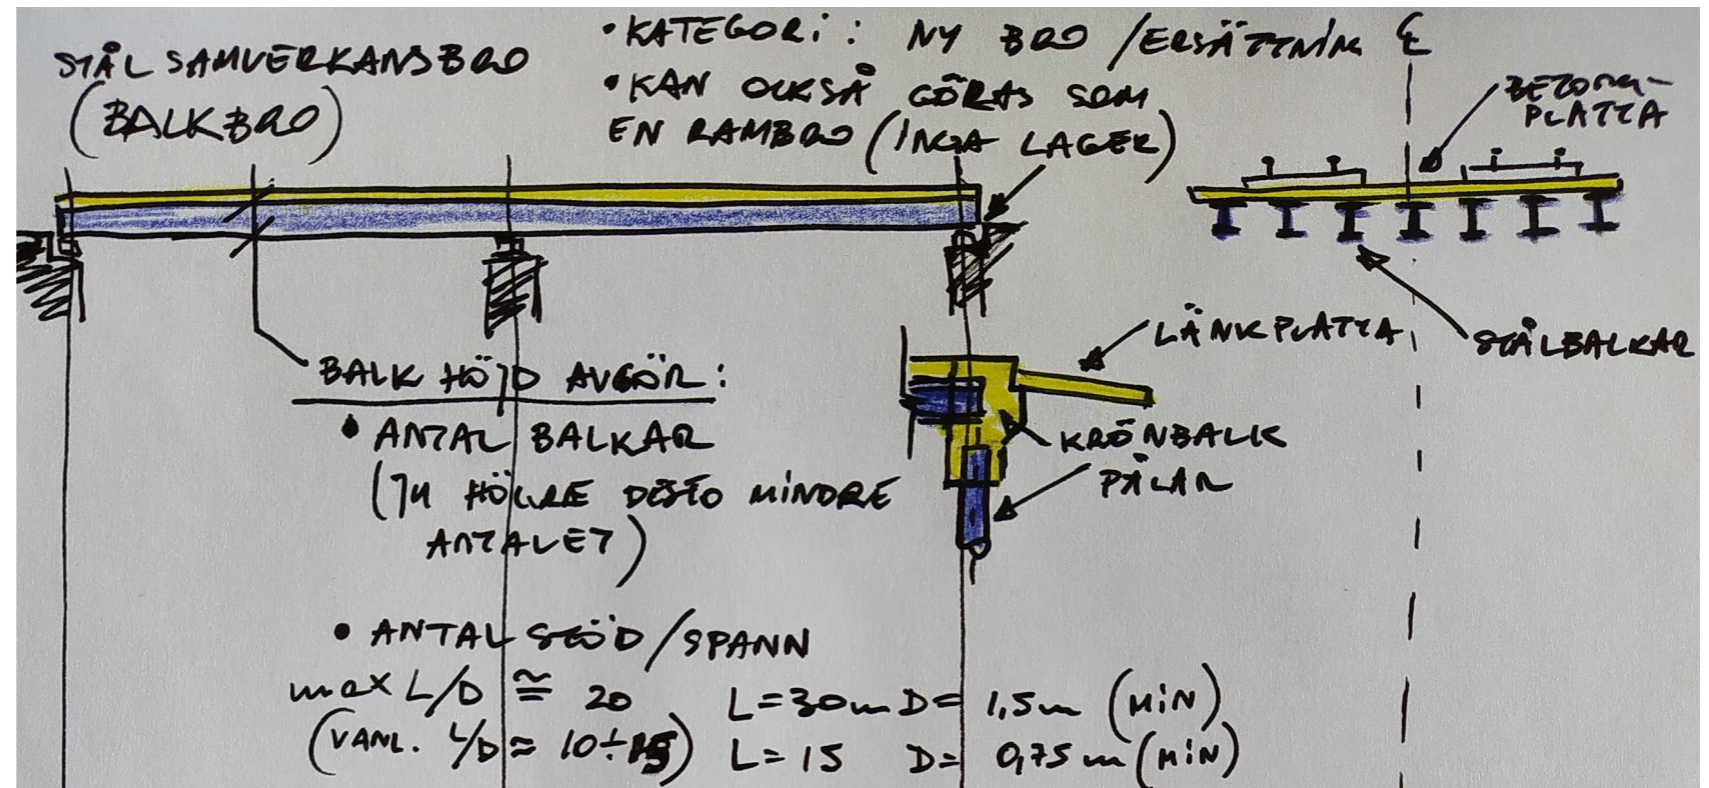 STÅLSAMVERKANSBRO
(BALKBRO)
• KATEGORI: NY BRO /ERSÄTTNING
• KAN OCKSÅ GÖRAS SOM
EN RAMBRO (INGA LAGER)
℄
BETONG-
PLATTA
STÅLBALKAR
LÄNKPLATTA
KRÖNBALK
PÅLAR
BALKHÖJD AVGÖR:
• ANTAL BALKAR
(JU HÖGRE DESTO MINDRE
ANTALET)
• ANTAL STÖD/SPANN
max L/D ≅ 20 L=30m D= 1,5m (MIN)
(VANL. L/D ≈ 10÷15) L=15 D= 0,75m (MIN)